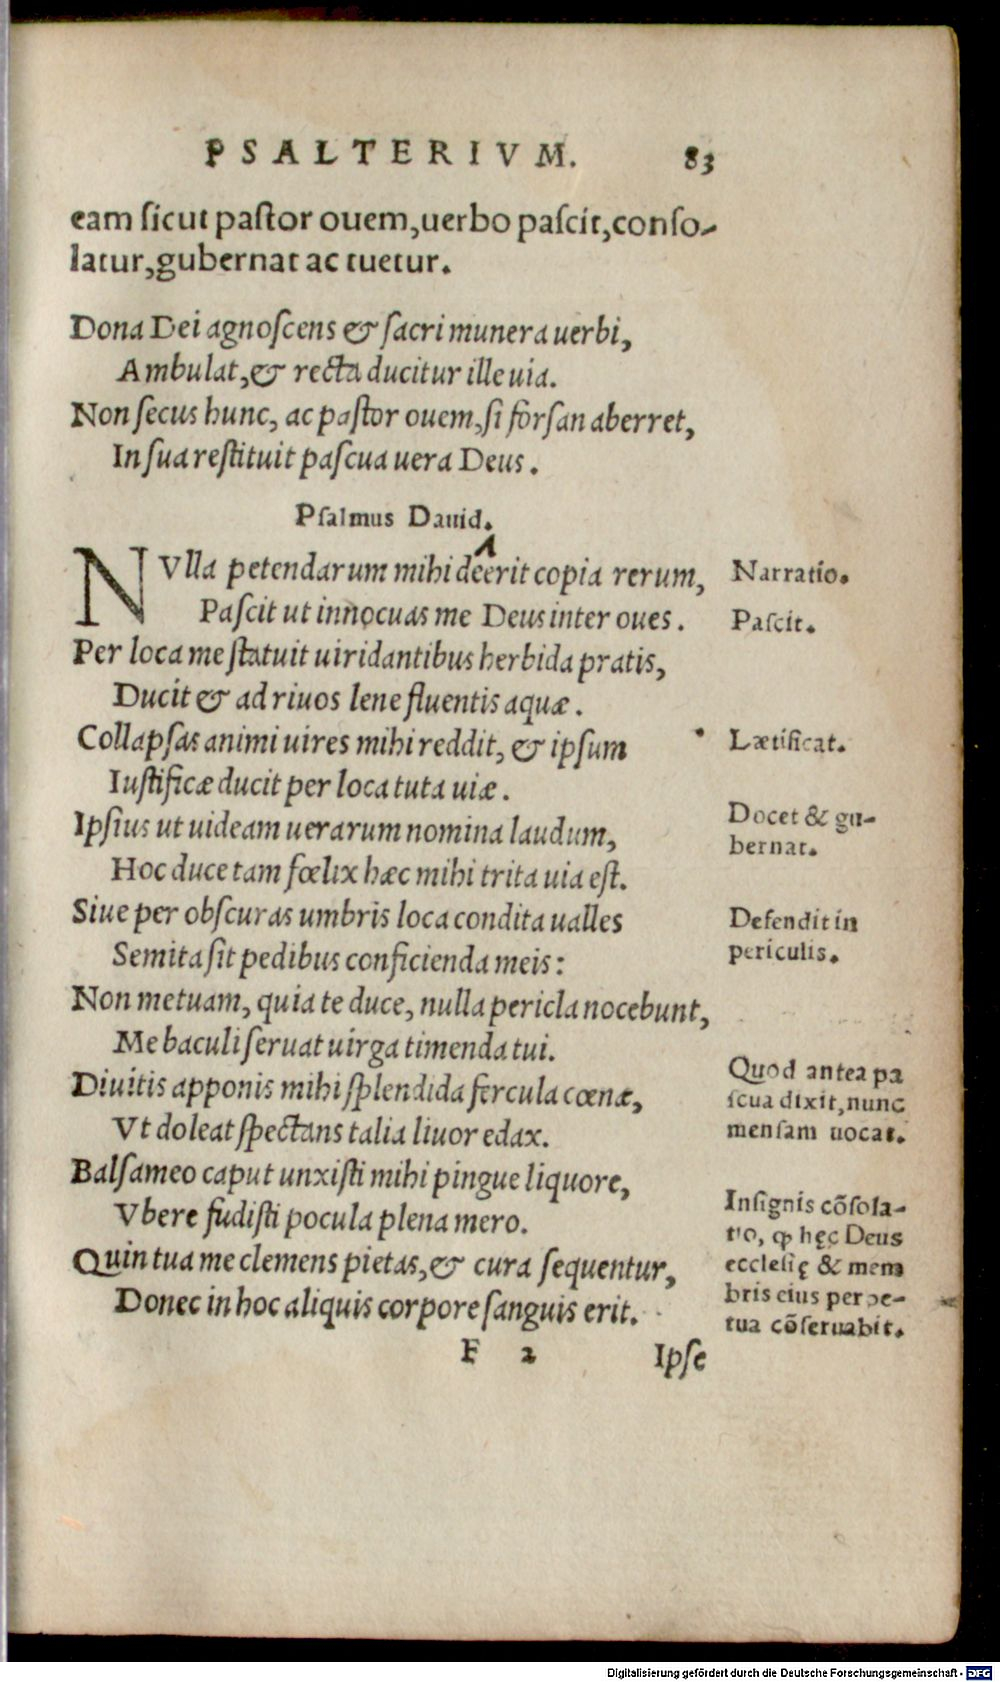 PSALTERIVM. 83
eam ſicut paſtor ouem, uerbo paſcit, conſo-
latur, gubernat ac tuetur.
Dona Dei agnoſcens & ſacri munera uerbi,
Ambulat, & recta ducitur ille uia.
Non ſecus hunc, ac paſtor ouem, ſi forſan aberret,
In ſua reſtituit paſcua uera Deus.
Pſalmus Dauid.
NVlla petendarum mihi deerit copia rerum,
Narratio.
Paſcit ut innocuas me Deus inter oues.
Paſcit.
Per loca me ſtatuit uiridantibus herbida pratis,
Ducit & ad riuos lene fluentis aquæ.
Collapſas animi uires mihi reddit, & ipſum
Lætificat.
Iuſtificæ ducit per loca tuta uiæ.
Ipſius ut uideam uerarum nomina laudum,
Docet & gu-
bernat.
Hoc duce tam fœlix hæc mihi trita uia eſt.
Siue per obſcuras umbris loca condita ualles
Defendit in
periculis.
Semita ſit pedibus conficienda meis:
Non metuam, quia te duce, nulla pericla nocebunt,
Me baculi ſeruat uirga timenda tui.
Diuitis apponis mihi ſplendida fercula cœnæ,
Quod antea pa
ſcua dixit, nunc
menſam uocat.
Vt doleat ſpectans talia liuor edax.
Balſameo caput unxiſti mihi pingue liquore,
Vbere fudiſti pocula plena mero.
Inſignis cõſola-
tio, ꝙ hęc Deus
eccleſię & mem
bris eius perpe-
tua cõſeruabit.
Quin tua me clemens pietas, & cura ſequentur,
Donec in hoc aliquis corpore ſanguis erit.
F 2 Ipſe
Digitalisierung gefördert durch die Deutsche Forschungsgemeinschaft - DFG